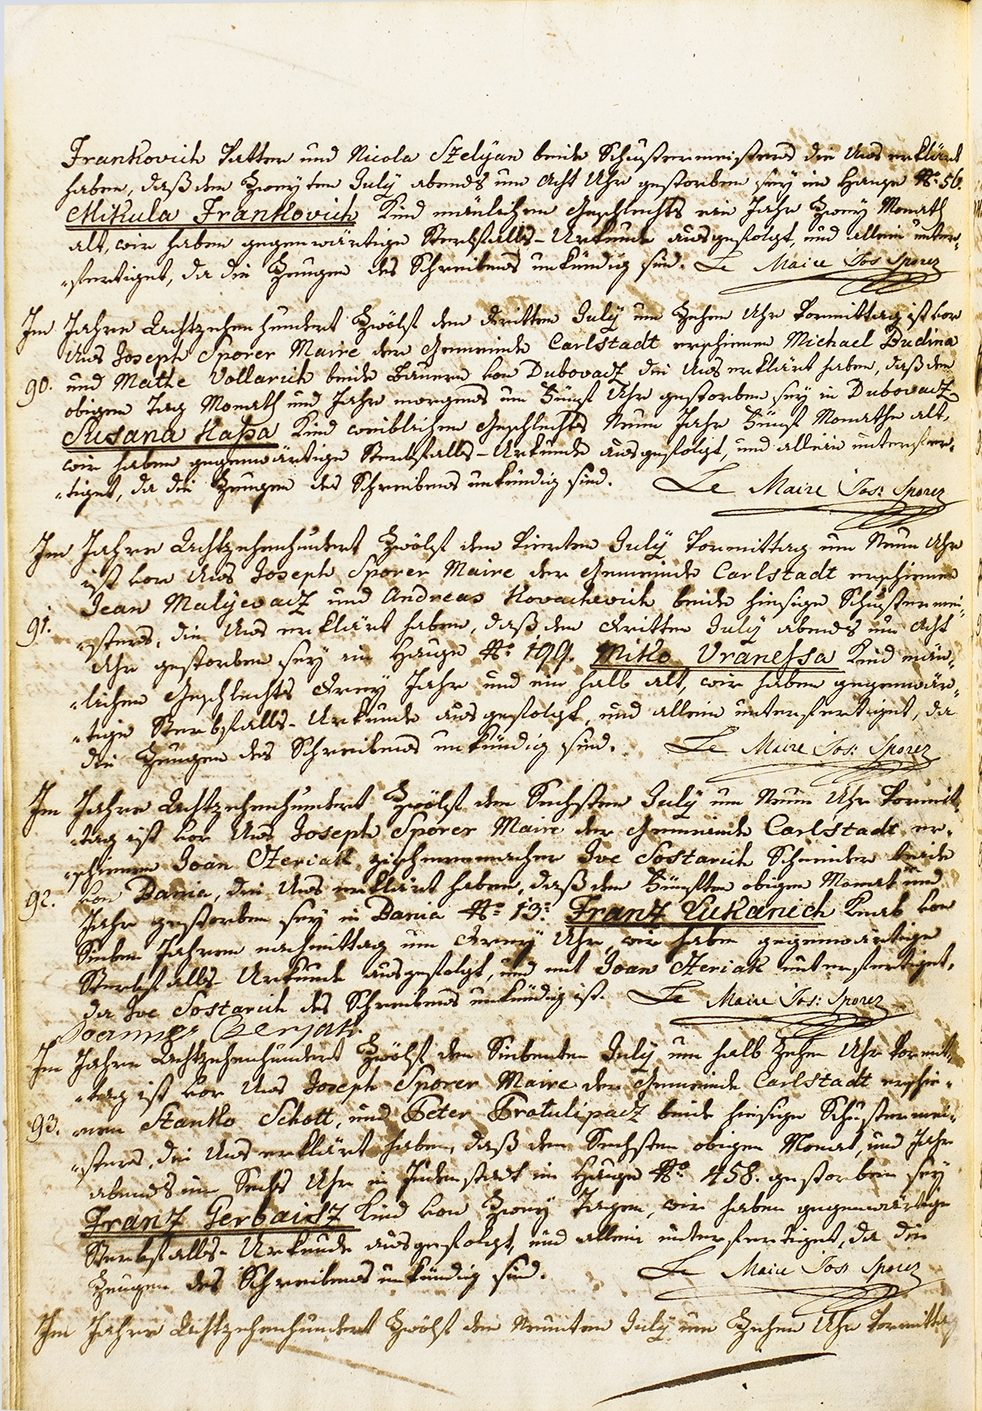 Frankovich Vatter und Nicola Szelyan beide Schustermeisters die Uns erklärt
haben, daß den Zweyten July abends um Acht Uhr gestorben sey im Hause No: 56.
Mikula Frankovich Kind mänlichen Geschlechts ein Jahr Zwey Monath
alt, wir haben gegenwärtige Sterbfalls-Urkunde ausgefolgt, und allein unter-
-fertiget, da die Zeugen des Schreibens unkündig sind. Le Maire Jos Sporer
Im Jahre Achtzehenhundert Zwölf den dritten July um Zehen Uhr Vormittag ist vor
Uns Joseph Sporer Maire der Gemeinde Carlstadt erschienen Michael Budina
90. und Matte Vollarich beide Bauern von Dubovacz die Uns erklärt haben, daß den
obigen Tag Monath und Jahr morgens um Fünf Uhr gestorben sey in Dubovacz
Susana Kaßa Kind weiblichen Geschlechts Neun Jahr Fünf Monathe alt,
wir haben gegenwärtige Sterbfalls-Urkunde ausgefolgt, und allein unterfer-
-tiget, da die Zeugen des Schreibens unkündig sind. Le Maire Jos: Sporer
Im Jahre Achtzehenhundert Zwölf den Vierten July Vormittag um Neun Uhr
ist vor Uns Joseph Sporer Maire der Gemeinde Carlstadt erschienen
Jean Malyevacz und Andreas Kovachevich beide hiesige Schustermei-
91. -sters, die Uns erklärt haben, daß den dritten July abends um Acht
Uhr gestorben sey im Hause No: 199. Niko Vranessa Kind män-
-lichen Geschlechts Drey Jahr und ein halb alt, wir haben gegenwär-
-tige Sterbfalls-Urkunde ausgefolgt, und allein unterfertiget, da
die Zeugen des Schreibens unkündig sind. Le Maire Jos: Sporer
Im Jahre Achtzehenhundert Zwölf den Sechsten July um Neun Uhr Vormit-
-tag ist vor Uns Joseph Sporer Maire der Gemeinde Carlstadt er-
-schienen Joan Czeriak Ive Sostarich Schneider beide
92. von Bania, die Uns erklärt haben, daß den Fünften obigen Monat und
Jahr gestorben sey in Bania No: 13: Franz Lukanich Knab von
Sieben Jahren nachmittag um Drey Uhr, wir haben gegenwärtige
Sterbfalls-Urkunde ausgefolgt, und mit Joan Czeriak unterfertiget,
da Ive Sostarich des Schreibens unkündig ist. Le Maire Jos: Sporer
Joannes Czerjak.
Im Jahre Achtzehenhundert Zwölf den Siebenten July um halb Zehen Uhr Vormit-
-tag ist vor Uns Joseph Sporer Maire der Gemeinde Carlstadt erschie-
93. -nen Stanko Schott, und Peter Bratulipacz beide hiesige Schustermei-
-sters, die Uns erklärt haben, daß den Sechsten obigen Monat, und Jahr
abends um Sechs Uhr in im Hause No: 458. gestorben sey
Franz Gerbaisz Kind von Zwey Tagen, wir haben gegenwärtige
Sterbfalls-Urkunde ausgefolgt, und allein unterfertiget, da die
Zeugen des Schreibens unkündig sind. Le Maire Jos: Sporer
Im Jahre Achtzehenhundert Zwölf den Neunten July um Zehen Uhr Vormittag